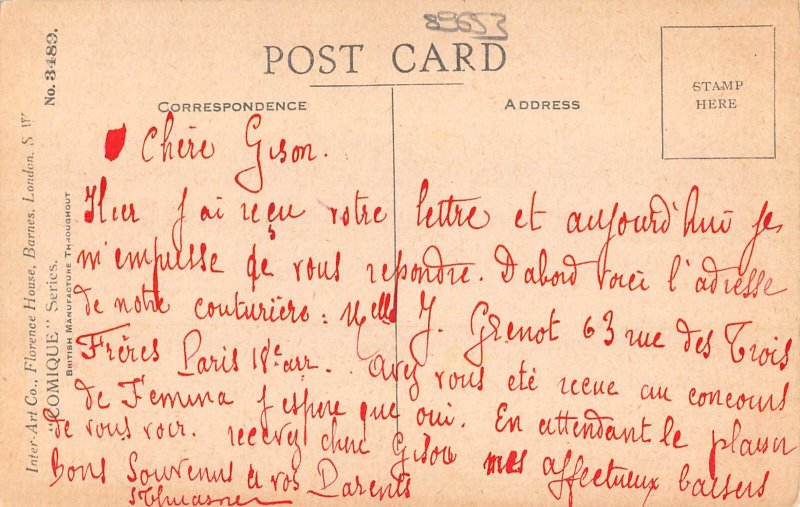 89653
POST CARD
CORRESPONDENCE
ADDRESS
STAMP
HERE
Inter-Art Co., Florence House, Barnes, London, S.W.
"COMIQUE" Series.
No. 3489.
BRITISH MANUFACTURE THROUGHOUT
Chère Gison.
Hier j'ai reçu votre lettre et aujourd'hui je
m'empresse de vous repondre. D'abord voici l'adresse
de notre couturière : Melle J. Grenot 63 rue des Trois
Frères Paris 18e arr. avez vous eté recue au concours
de Femina j'espere que oui. En attendant le plaisir
de vous voir. recevez chere Gison mes affectueux baisers
Bons Souvenirs à vos Parents